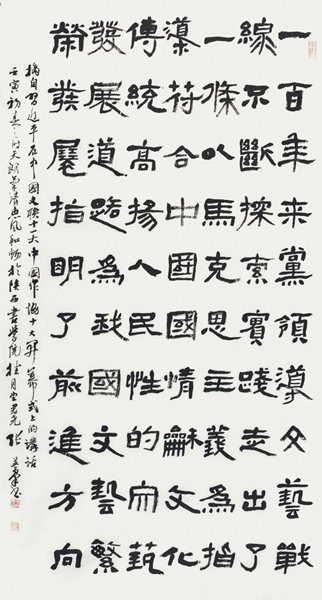 一百年来黨領導文藝戰
線不斷探索實踐走出了
一條以馬克思主義為指
導符合中國國情龢文化
傳統高揚人民性的文藝
發展道路為我國文藝繁
榮發展指明了前進方向
摘自習近平在中國文聯十一大中國作協十大開幕式上的講話
壬寅初春之时天朗氣清惠風和暢於陕西書學院桂月堂